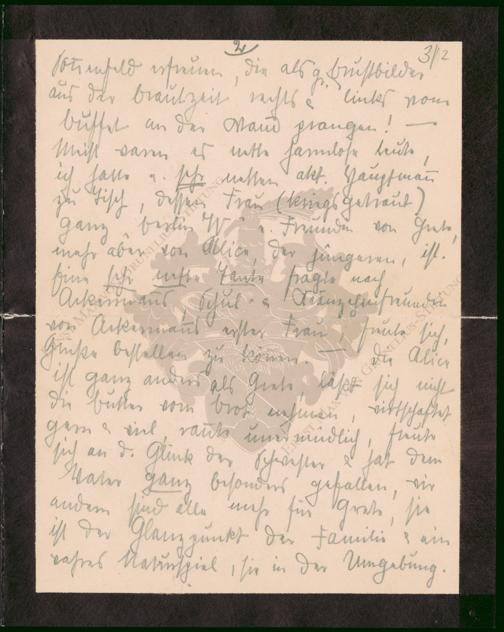 2
3/12
Rosenfeld erfreuen, die als gr. Brustbilder
aus der Brautzeit rechts & links vom
Buffet an der Wand prangen! —
Meist waren es nette harmlose Leute,
ich hatte e. sehr netten akt. Hauptmann
zu Tisch, dessen Frau (kriegsgetraut)
ganz „Berlin W" e. Freundin von Grete,
mehr aber von Alice, der jüngeren, ist.
Eine sehr nette Tante fragte nach
Ackermanns, Schul- & Freundin
von Ackermanns erster Frau — freute sich,
Grüße bestellen zu können. — die Alice
ist ganz anders als Grete läßt sich nicht
die Butter vom Brot nehmen, wirtschaftet
gern & viel, unermüdlich, freute
sich an d. Glück der Schwester & hat dem
Vater ganz besonders gefallen, wir
andern sind alle mehr für Grete, sie
ist der Glanzpunkt der Familie & ein
wahres Naturspiel, sie in der Umgebung.